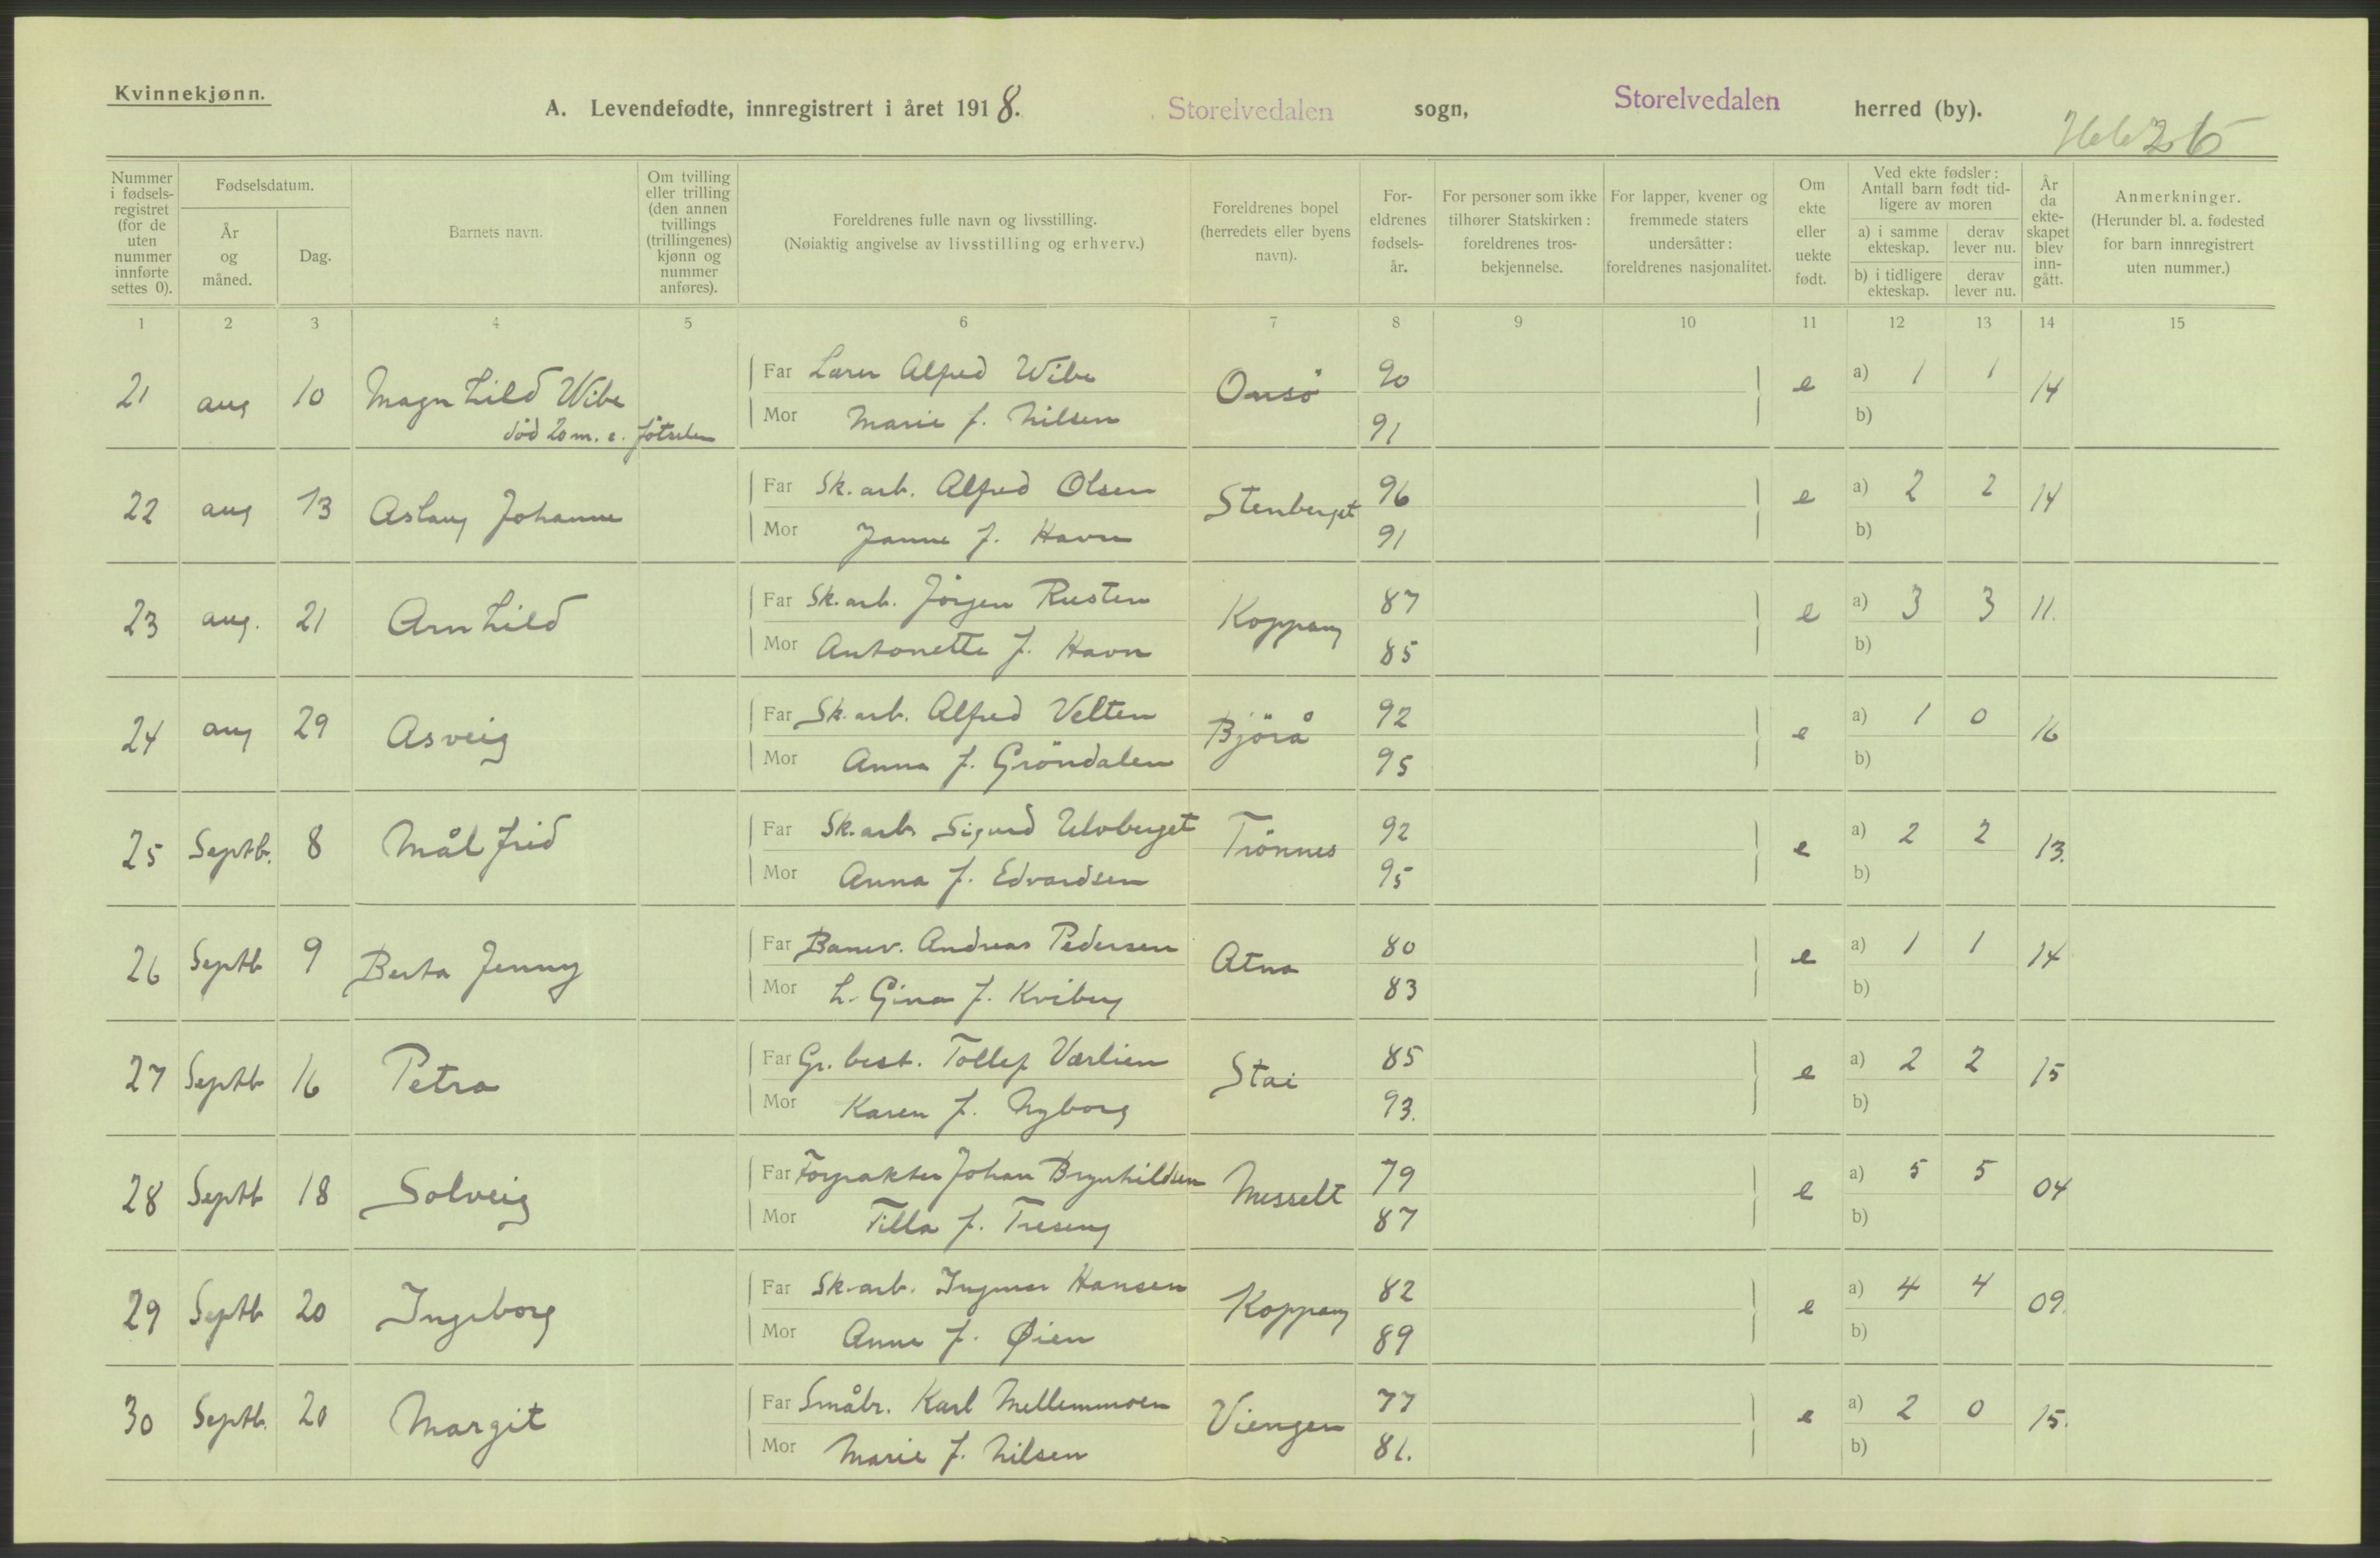 Kvinnekjønn.
A. Levendefødte, innregistrert i året 1918. Storelvedalen sogn, Storelvedalen herred (by).
Nummer i fødsels-registret (for de uten nummer innførte settes 0).
Fødselsdatum.
År og måned.
Dag.
Barnets navn.
Om tvilling eller trilling (den annen tvillings (trillingenes) kjønn og nummer anføres).
Foreldrenes fulle navn og livsstilling.
(Nøiaktig angivelse av livsstilling og erhverv.)
Foreldrenes bopel (herredets eller byens navn).
For-eldrenes fødsels-år.
For personer som ikke tilhører Statskirken: foreldrenes tros-bekjennelse.
For lapper, kvener og fremmede staters undersåtter: foreldrenes nasjonalitet.
Om ekte eller uekte født.
Ved ekte fødsler: Antall barn født tid-ligere av moren
a) i samme ekteskap. derav lever nu.
b) i tidligere ekteskap. derav lever nu.
År da ekte-skapet blev inn-gått.
Anmerkninger.
(Herunder bl. a. fødested for barn innregistrert uten nummer.)
1 2 3 4 5 6 7 8 9 10 11 12 13 14 15
21 aug 10 Magnhild Wibe Far Lærer Alfred Wibe Onsö 90 e a) 1 1 14
død 20 m. e. fötselen Mor Marie f. Nilsen 91 b)
22 aug 13 Aslaug Johanne Far Sk. arb. Alfred Olsen Stenberget 96 e a) 2 2 14
Mor Janne f. Havn 91 b)
23 aug. 21 Arnhild Far Sk. arb. Jörgen Rusten Koppang 87 e a) 3 3 11.
Mor Antonette f. Havn 85 b)
24 aug 29 Asveig Far Sk. arb. Alfred Velten Björå 92 e a) 1 0 16
Mor Anna f. Gröndalen 95 b)
25 Septb. 8 Målfrid Far Sk. arb. Sigurd Ulvberget Trönnes 92 e a) 2 2 13.
Mor Anna f. Edvardsen 95 b)
26 Septb 9 Berta Jenny Far Banev. Andreas Pedersen Atna 80 e a) 1 1 14
Mor L. Gina f. Kviberg 83 b)
27 Septb 16 Petra Far Gr. best. Tollef Værlien Stai 85 e a) 2 2 15
Mor Karen f. Nyborg 93. b)
28 Septb 18 Solveig Far Forpakter Johan Brynhildsen Messelt 79 e a) 5 5 04
Mor Tilla f. Treseng 87 b)
29 Septb 20 Ingeborg Far Sk. arb. Ingmar Hansen Koppang 82 e a) 4 4 09.
Mor Anna f. Øien 89 b)
30 Septb. 20 Margit Far Småbr. Karl Mellemmoen Viengen 77 e a) 2 0 15.
Mor Marie f. Nilsen 81. b)